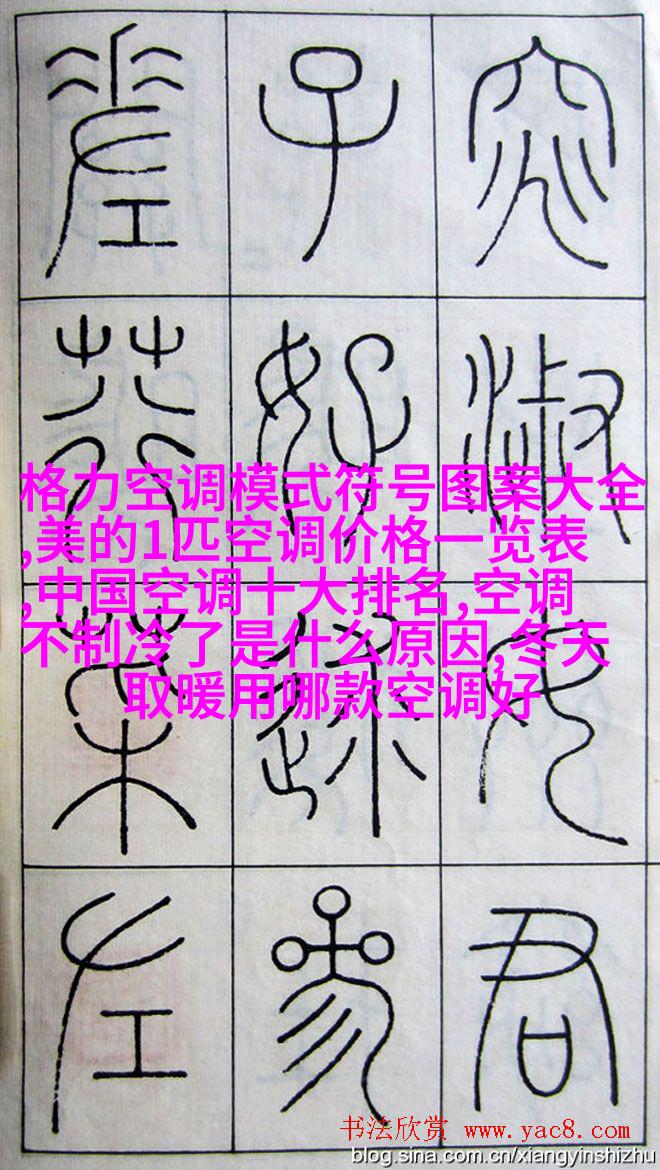 窕淑女君
子好逑參
差荇菜左
格力空调模式符号图案大全
,美的1匹空调价格一览表
,中国空调十大排名,空调
不制冷了是什么原因,冬天
取暖用哪款空调好
书法欣赏 www.yac8.com
blog.sina.com.cn/xiangyinshizhu